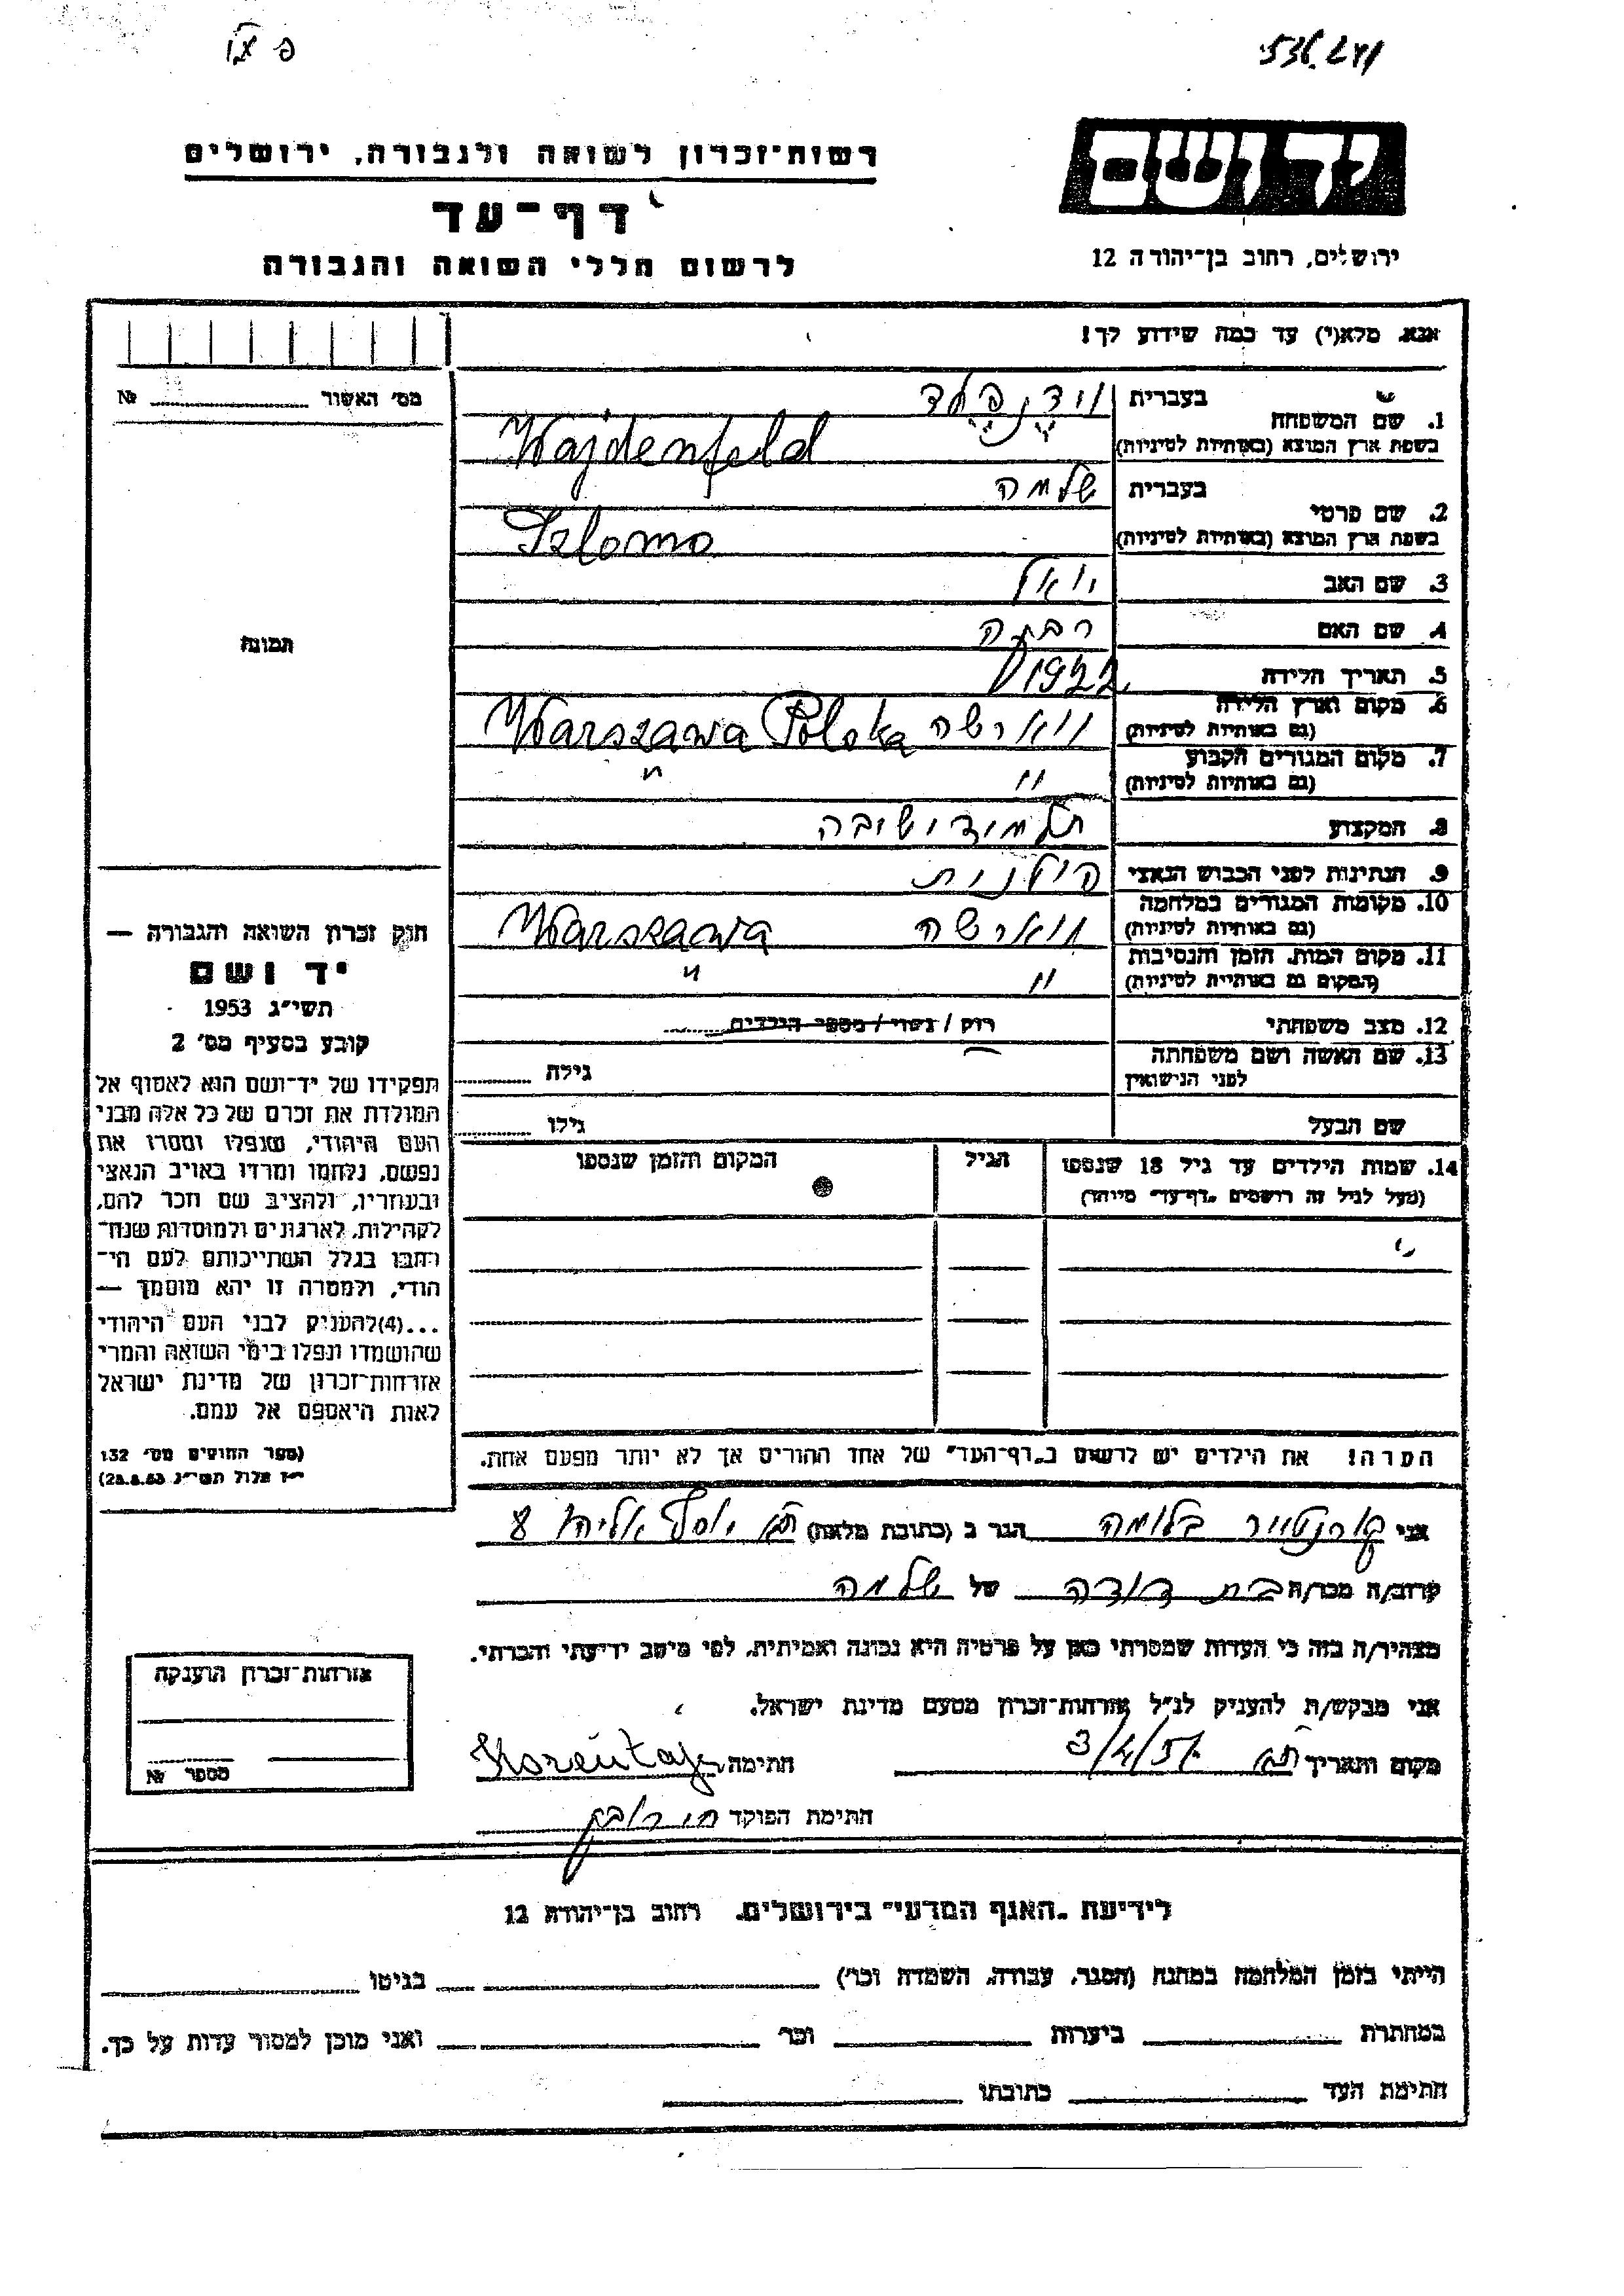 רשות־זכרון לשואה ולגבורה, ירושלים
דף־עד
לרשום חללי השואה והגבורה
יד ושם
ירושלים, רחוב בן־יהודה 12
אנא, מלא(י) עד כמה שידוע לך!
מס׳ האשור № 
1. שם המשפחה
בעברית וידנפלד
בשפת ארץ המוצא (באותיות לטיניות) Wajdenfeld
2. שם פרטי
בעברית שלמה
בשפת ארץ המוצא (באותיות לטיניות) Szlomo
3. שם האב יואל
4. שם האם רבקה
5. תאריך הלידה 1922
6. מקום וארץ הלידה
(גם באותיות לטיניות) ווארשה Warszawa Polska
7. מקום המגורים הקבוע
(גם באותיות לטיניות) " "
8. המקצוע תלמוד ישיבה
9. הנתינות לפני הכבוש הנאצי פולנית
10. מקומות המגורים במלחמה
(גם באותיות לטיניות) ווארשה Warszawa
11. מקום המות, הזמן והנסיבות
(המקום גם באותיות לטיניות) " "
12. מצב משפחתי רוק / נשוי / מספר הילדים
13. שם האשה ושם משפחתה
לפני הנישואין גילה
שם הבעל גילו
14. שמות הילדים עד גיל 18 שנספו
(מעל לגיל זה רושמים „דף־עד״ מיוחד)
הגיל
המקום והזמן שנספו
תמונה
חוק זכרון השואה והגבורה —
יד ושם
תשי״ג 1953
קובע בסעיף מס׳ 2
תפקידו של יד־ושם הוא לאסוף אל
המולדת את זכרם של כל אלה מבני
העם היהודי, שנפלו ומסרו את
נפשם, נלחמו ומרדו באויב הנאצי
ובעוזריו, ולהציב שם וזכר להם,
לקהילות, לארגונים ולמוסדות שנח־
רבו בגלל השתייכותם לעם הי־
הודי, ולמטרה זו יהא מוסמך —
...(4)להעניק לבני העם היהודי
שהושמדו ונפלו בימי השואה והמרי
אזרחות־זכרון של מדינת ישראל
לאות היאספם אל עמם.
(ספר החוקים מס׳ 132
י״ז אלול תשי״ג 28.8.53)
הערה! את הילדים יש לרשום ב„דף־העד״ של אחד ההורים אך לא יותר מפעם אחת.
אני בלומה הגר ב (כתובת מלאה) ת״א יוסף אליהו 8
קרוב/ה מכר/ה בת דודה של שלמה
מצהיר/ה בזה כי העדות שמסרתי כאן על פרטיה היא נכונה ואמיתית, לפי מיטב ידיעתי והכרתי.
אני מבקש/ת להעניק לנ״ל אזרחות־זכרון מטעם מדינת ישראל.
מקום ותאריך ת״א חתימה
חתימת הפוקד
אזרחות־זכרון הוענקה
מספר №
לידיעת „האגף המדעי״ בירושלים, רחוב בן־יהודה 12
הייתי בזמן המלחמה במחנה (הסגר, עבודה, השמדה וכו׳) בגיטו
במחתרת ביערות וכו׳ ואני מוכן למסור עדות על כך.
חתימת העד כתובתו